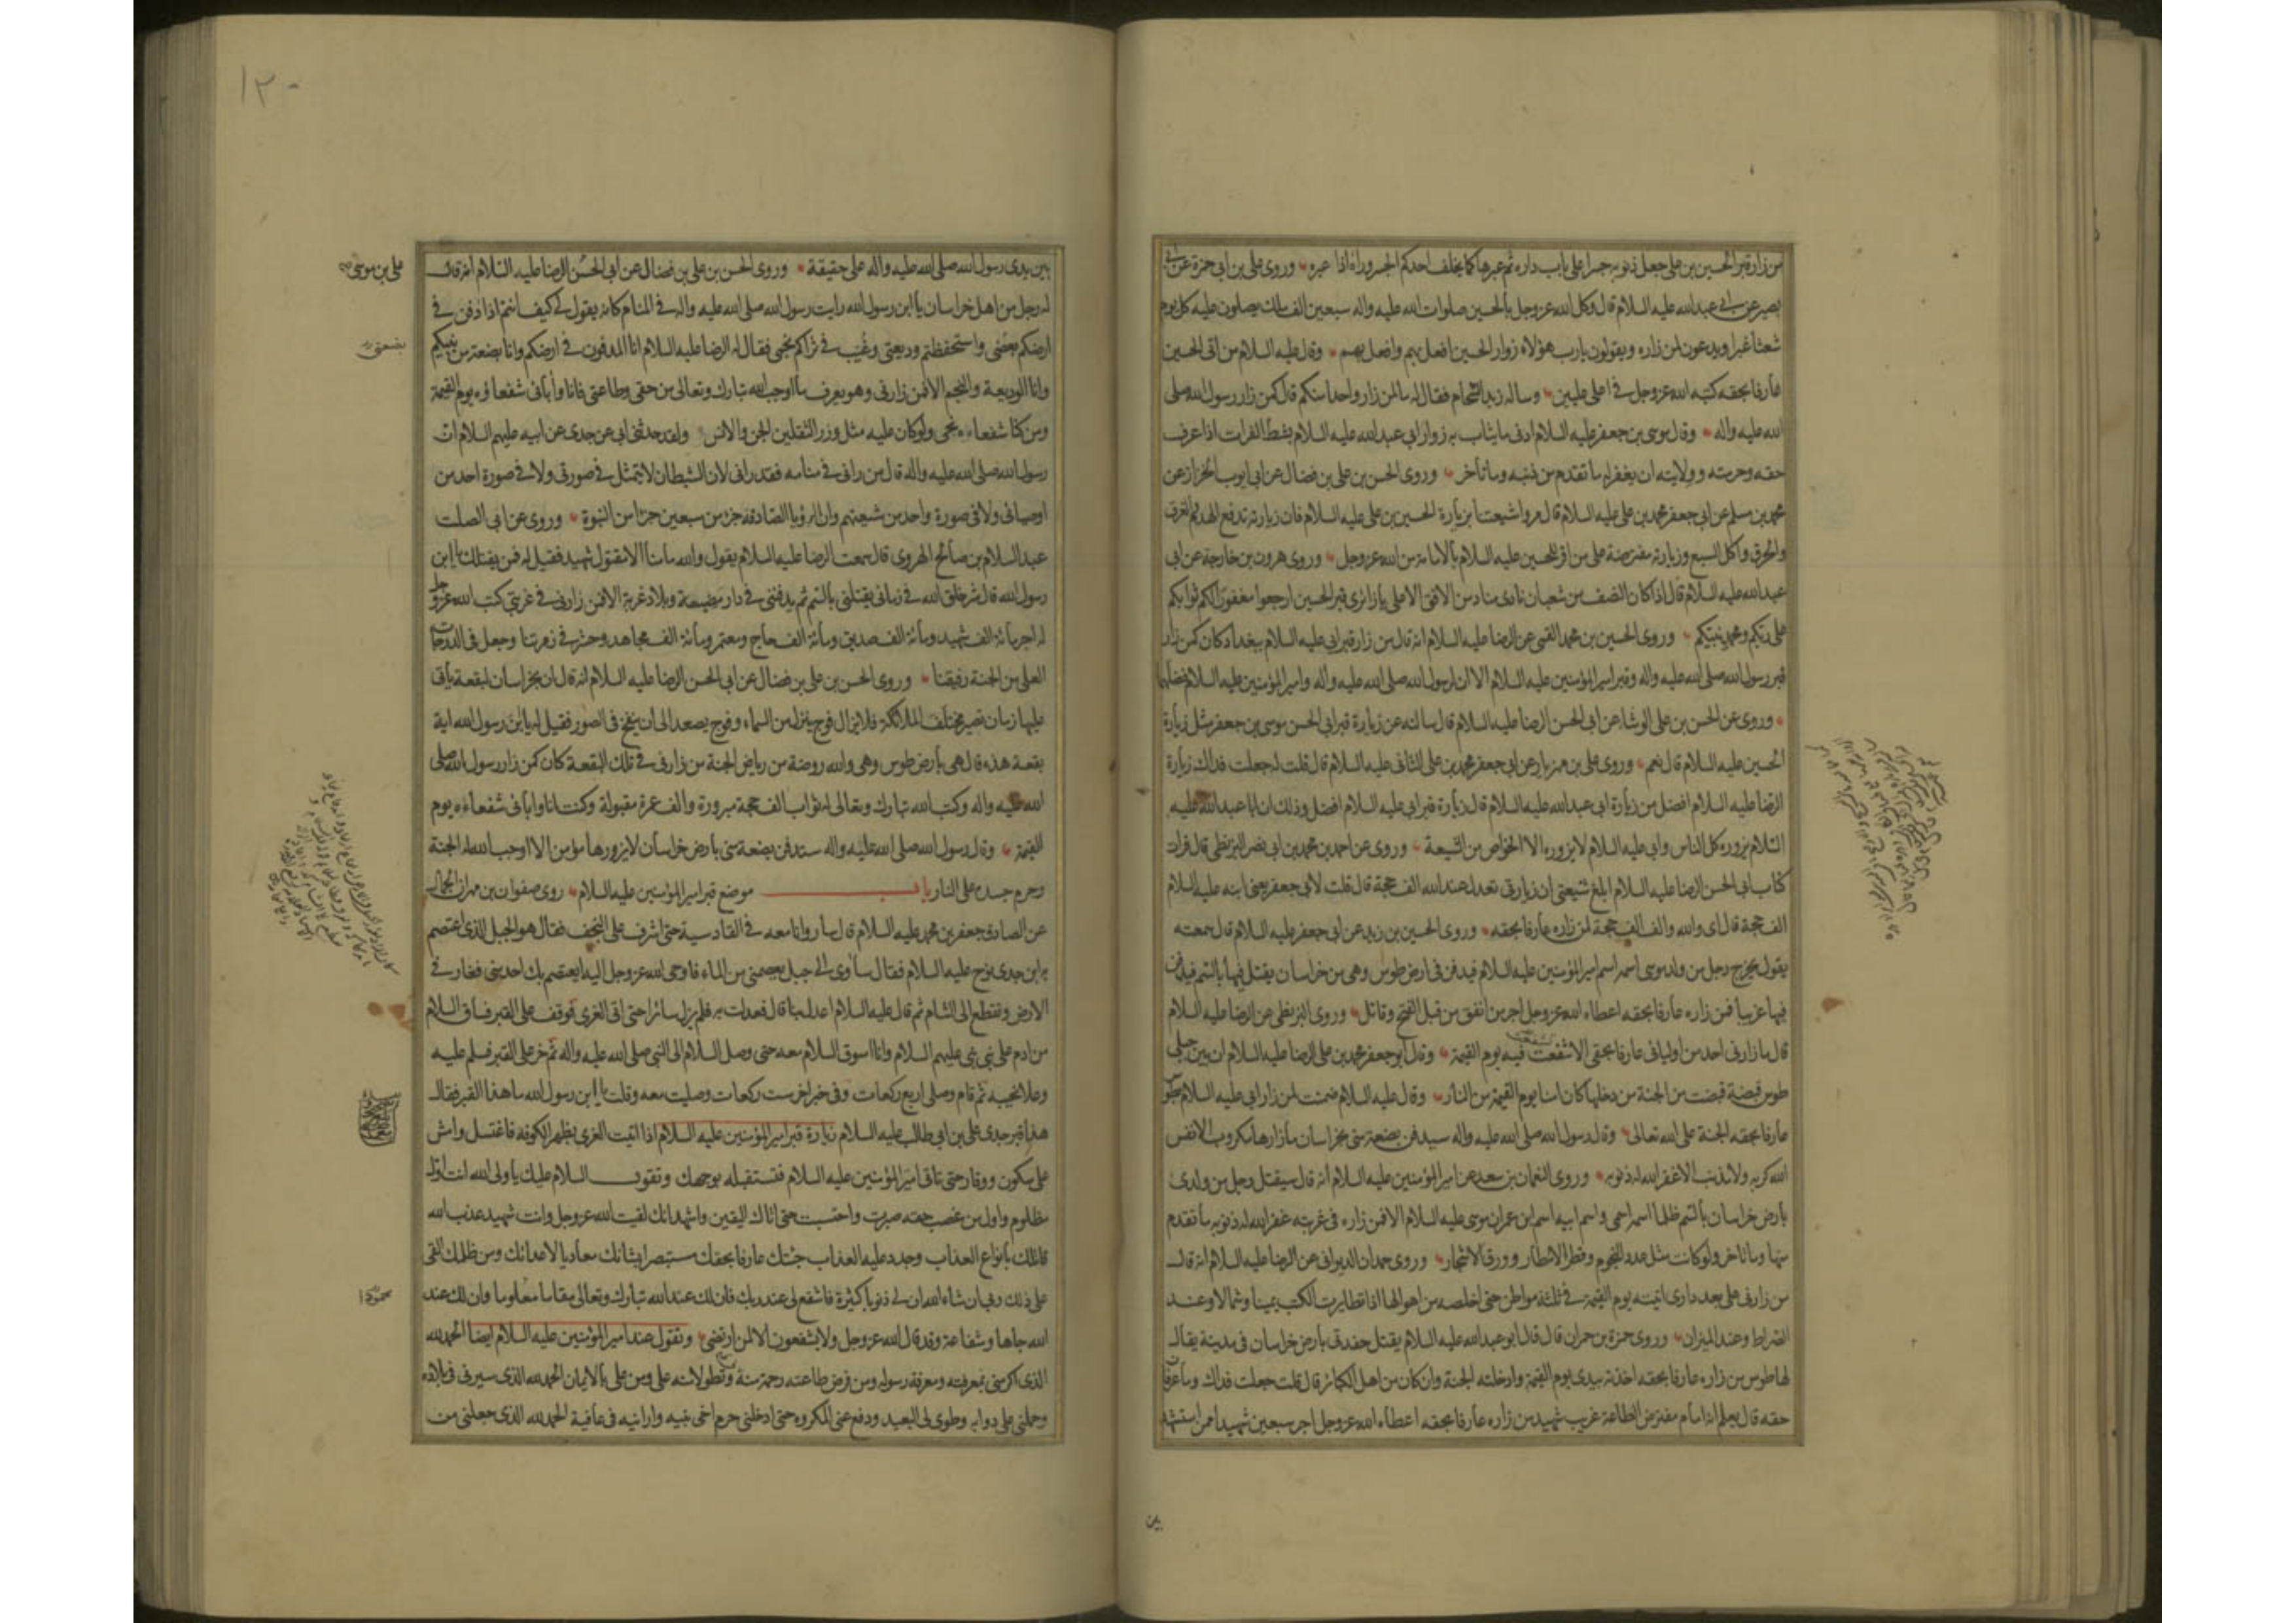 من زار قبر الحسين بن علی جعل ذنوبه جسرا علی باب داره ثم عبرها كما يخلف احدكم الجسر وراه اذا عبره وروی علی بن ابی حمزة عن ابی
بصير عن ابی عبد الله عليه السلام قال وكل الله عز وجل بالحسين صلوات الله عليه واله سبعين الف ملك يصلون عليه كل يوم
شعثا غبرا ويدعون لمن زاره ويقولون يارب هؤلاء زوار الحسين افعل بهم وافعل بهم وقال عليه السلام من اتی الحسين
عارفا بحقه كتبه الله عز وجل فی اعلی عليين وساله زيد الشحام فقال له ما لمن زار واحدا منكم قال كمن زار رسول الله صلی
الله عليه واله وقال موسی بن جعفر عليه السلام ادنی ما يثاب به زوار ابی عبد الله عليه السلام بشط الفرات اذا عرف
حقه وحرمته وولايته ان يغفر له ما تقدم من ذنبه وما تأخر وروی الحسن بن علی بن فضال عن ابی ايوب الخزاز عن
محمد بن مسلم عن ابی جعفر محمد بن علی عليه السلام قال مروا شيعتنا بزيارة الحسين بن علی عليه السلام فان زيارته تدفع الهدم والغرق
والحرق واكل السبع وزيارته مفترضة علی من اقر للحسين عليه السلام بالامامة من الله عز وجل وروی هرون بن خارجة عن ابی
عبد الله عليه السلام قال اذا كان النصف من شعبان نادی مناد من الافق الاعلی يا زائری قبر الحسين ارجعوا مغفورا لكم ثوابكم
علی ربكم ومحمد نبيكم وروی الحسين بن محمد القمی عن الرضا عليه السلام انه قال من زار قبر ابی عليه السلام ببغداد كان كمن زار
قبر رسول الله صلی الله عليه واله وقبر امير المؤمنين عليه السلام الا ان لرسول الله صلی الله عليه واله وامير المؤمنين عليه السلام فضلهما
وروی عن الحسن بن علی الوشا عن ابی الحسن الرضا عليه السلام قال سالته عن زيارة قبر ابی الحسن موسی بن جعفر مثل زيارة
الحسين عليه السلام قال نعم وروی علی بن مهزيار عن ابی جعفر محمد بن علی الثانی عليه السلام قال قلت له جعلت فداك زيارة
الرضا عليه السلام افضل من زيارة ابی عبد الله عليه السلام قال زيارة قبر ابی عليه السلام افضل وذلك ان ابا عبد الله عليه
السلام يزوره كل الناس وابی عليه السلام لا يزوره الا الخواص من الشيعة وروی عن احمد بن محمد بن ابی نصر البزنطی قال قرات
كتاب ابی الحسن الرضا عليه السلام ابلغ شيعتی ان زيارتی تعدل عند الله الف حجة قال قلت لابی جعفر يعنی ابنه عليه السلام
الف حجة قال ای والله والف الف حجة لمن زاره عارفا بحقه وروی الحسين بن زيد عن ابی جعفر عليه السلام قال سمعته
يقول يخرج رجل من ولد موسی اسمه اسم امير المؤمنين عليه السلام فيدفن فی ارض طوس وهی من خراسان يقتل فيها بالسم فيدفن
فيها غريبا فمن زاره عارفا بحقه اعطاه الله عز وجل اجر من انفق من قبل الفتح وقاتل وروی البزنطی عن الرضا عليه السلام
قال ما زارنی احد من اوليائی عارفا بحقی الا شفعت فيه يوم القيمة وقال ابو جعفر محمد بن علی الرضا عليه السلام ان بين جبلی
طوس قبضة قبضت من الجنة من دخلها كان امنا يوم القيمة من النار وقال عليه السلام ضمنت لمن زار ابی عليه السلام بطوس
عارفا بحقه الجنة علی الله تعالی وقال رسول الله صلی الله عليه واله سيدفن بضعة منی بخراسان ما زارها مكروب الا نفس
الله كربه ولا مذنب الا غفر الله له ذنوبه وروی النعمان بن سعد عن امير المؤمنين عليه السلام انه قال سيقتل رجل من ولدی
بارض خراسان بالسم ظلما اسمه اسمی واسم ابيه اسم ابن عمران موسی عليه السلام الا فمن زاره فی غربته غفر الله له ذنوبه ما تقدم
منها وما تاخر ولو كانت مثل عدد النجوم وقطر الامطار وورق الاشجار وروی حمدان الديوانی عن الرضا عليه السلام انه قال
من زارنی علی بعد داری اتيته يوم القيمة فی ثلثة مواطن حتی اخلصه من اهوالها اذا تطايرت الكتب يمينا وشمالا وعند
الصراط وعند الميزان وروی حمزة بن حمران قال قال ابو عبد الله عليه السلام يقتل حفدتی بارض خراسان فی مدينة يقال
لها طوس من زاره عارفا بحقه اخذته بيدی يوم القيمة وادخلته الجنة وان كان من اهل الكبائر قال قلت جعلت فداك وما عرفان
حقه قال يعلم انه امام مفترض الطاعة غريب شهيد من زاره عارفا بحقه اعطاه الله عز وجل اجر سبعين شهيدا ممن استشهد
بين
١٢٠
بين يدی رسول الله صلی الله عليه واله علی حقيقة وروی الحسن بن علی بن فضال عن ابی الحسن الرضا عليه السلام انه قال
علی بن موسی
له رجل من اهل خراسان يا ابن رسول الله رايت رسول الله صلی الله عليه واله فی المنام كانه يقول لی كيف انتم اذا دفن فی
ارضكم بعضی واستحفظتم وديعتی وغيب فی ثراكم نجمی فقال له الرضا عليه السلام انا المدفون فی ارضكم وانا بضعة من نبيكم
بضعتی
وانا الوديعة والنجم الا فمن زارنی وهو يعرف ما اوجب الله تبارك وتعالی من حقی وطاعتی فانا وابائی شفعاؤه يوم القيمة
ومن كنا شفعاءه نجی ولو كان عليه مثل وزر الثقلين الجن والانس ولقد حدثنی ابی عن جدی عن ابيه عليهم السلام ان
رسول الله صلی الله عليه واله قال من رانی فی منامه فقد رانی لان الشيطان لا يتمثل فی صورتی ولا فی صورة احد من
اوصيائی ولا فی صورة واحد من شيعتهم وان الرؤيا الصادقة جزء من سبعين جزءا من النبوة وروی عن ابی الصلت
عبد السلام بن صالح الهروی قال سمعت الرضا عليه السلام يقول والله ما منا الا مقتول شهيد فقيل له فمن يقتلك يا ابن
رسول الله قال شر خلق الله فی زمانی يقتلنی بالسم ثم يدفننی فی دار مضيعة وبلاد غربة الا فمن زارنی فی غربتی كتب الله عز وجل
له اجر مائة الف شهيد ومائة الف صديق ومائة الف حاج ومعتمر ومائة الف مجاهد وحشر فی زمرتنا وجعل فی الدرجات
العلی من الجنة رفيقنا وروی الحسن بن علی بن فضال عن ابی الحسن الرضا عليه السلام انه قال ان بخراسان لبقعة ياتی
عليها زمان تصير مختلف الملائكة فلا يزال فوج ينزل من السماء وفوج يصعد الی ان ينفخ فی الصور فقيل له يا ابن رسول الله اية
بقعة هذه قال هی بارض طوس وهی والله روضة من رياض الجنة من زارنی فی تلك البقعة كان كمن زار رسول الله صلی
الله عليه واله وكتب الله تبارك وتعالی له ثواب الف حجة مبرورة والف عمرة مقبولة وكنت انا وابائی شفعاءه يوم
القيمة وقال رسول الله صلی الله عليه واله ستدفن بضعة منی بارض خراسان لا يزورها مؤمن الا اوجب الله له الجنة
وحرم جسده علی النار باب موضع قبر امير المؤمنين عليه السلام روی صفوان بن مهران الجمال
عن الصادق جعفر بن محمد عليه السلام قال سار وانا معه فی القادسية حتی اشرف علی النجف فقال هو الجبل الذی اعتصم
به ابن جدی نوح عليه السلام فقال ساوی الی جبل يعصمنی من الماء فاوحی الله عز وجل اليه ايعتصم بك احد منی فغار فی
الارض وتقطع الی الشام ثم قال عليه السلام اعدل بنا قال فعدلت به فلم يزل سائرا حتی اتی الغری فوقف علی القبر فساق السلام
من ادم علی نبی نبی عليهم السلام وانا اسوق السلام معه حتی وصل السلام الی النبی صلی الله عليه واله ثم خر علی القبر فسلم عليه
وعلا نحيبه ثم قام وصلی اربع ركعات وفی خبر اخر ست ركعات وصليت معه وقلت يا ابن رسول الله ما هذا القبر فقال
هذا قبر جدی علی بن ابی طالب عليه السلام زيارة قبر امير المؤمنين عليه السلام اذا اتيت الغری بظهر الكوفة فاغتسل وامش
علی سكون ووقار حتی تاتی امير المؤمنين عليه السلام فتستقبله بوجهك وتقول السلام عليك يا ولی الله انت اول
مظلوم واول من غصب حقه صبرت واحتسبت حتی اتاك اليقين واشهد انك لقيت الله عز وجل وانت شهيد عذب الله
قاتلك بانواع العذاب وجدد عليه العذاب جئتك عارفا بحقك مستبصرا بشانك معاديا لاعدائك ومن ظلمك القی
علی ذلك ربی ان شاء الله ان لی ذنوبا كثيرة فاشفع لی عند ربك فان لك عند الله تبارك وتعالی مقاما معلوما وان لك عند
محمودا
الله جاها وشفاعة وقد قال الله عز وجل ولا يشفعون الا لمن ارتضی وتقول عند امير المؤمنين عليه السلام ايضا الحمد لله
الذی اكرمنی بمعرفته ومعرفة رسوله ومن فرض طاعته رحمة منه وتطولا منه علی ومن علی بالايمان الحمد لله الذی سيرنی فی بلاده
وحملنی علی دوابه وطوی لی البعيد ودفع عنی المكروه حتی ادخلنی حرم اخی نبيه وارانيه فی عافية الحمد لله الذی جعلنی من